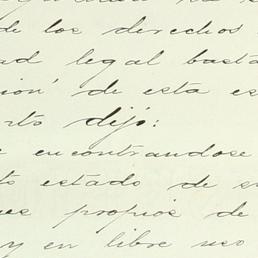 de los derechos
ad legal bast
ion' de esta es
rto dijo:
e encontrandose
to estado de s
es propios de
y en libre uso